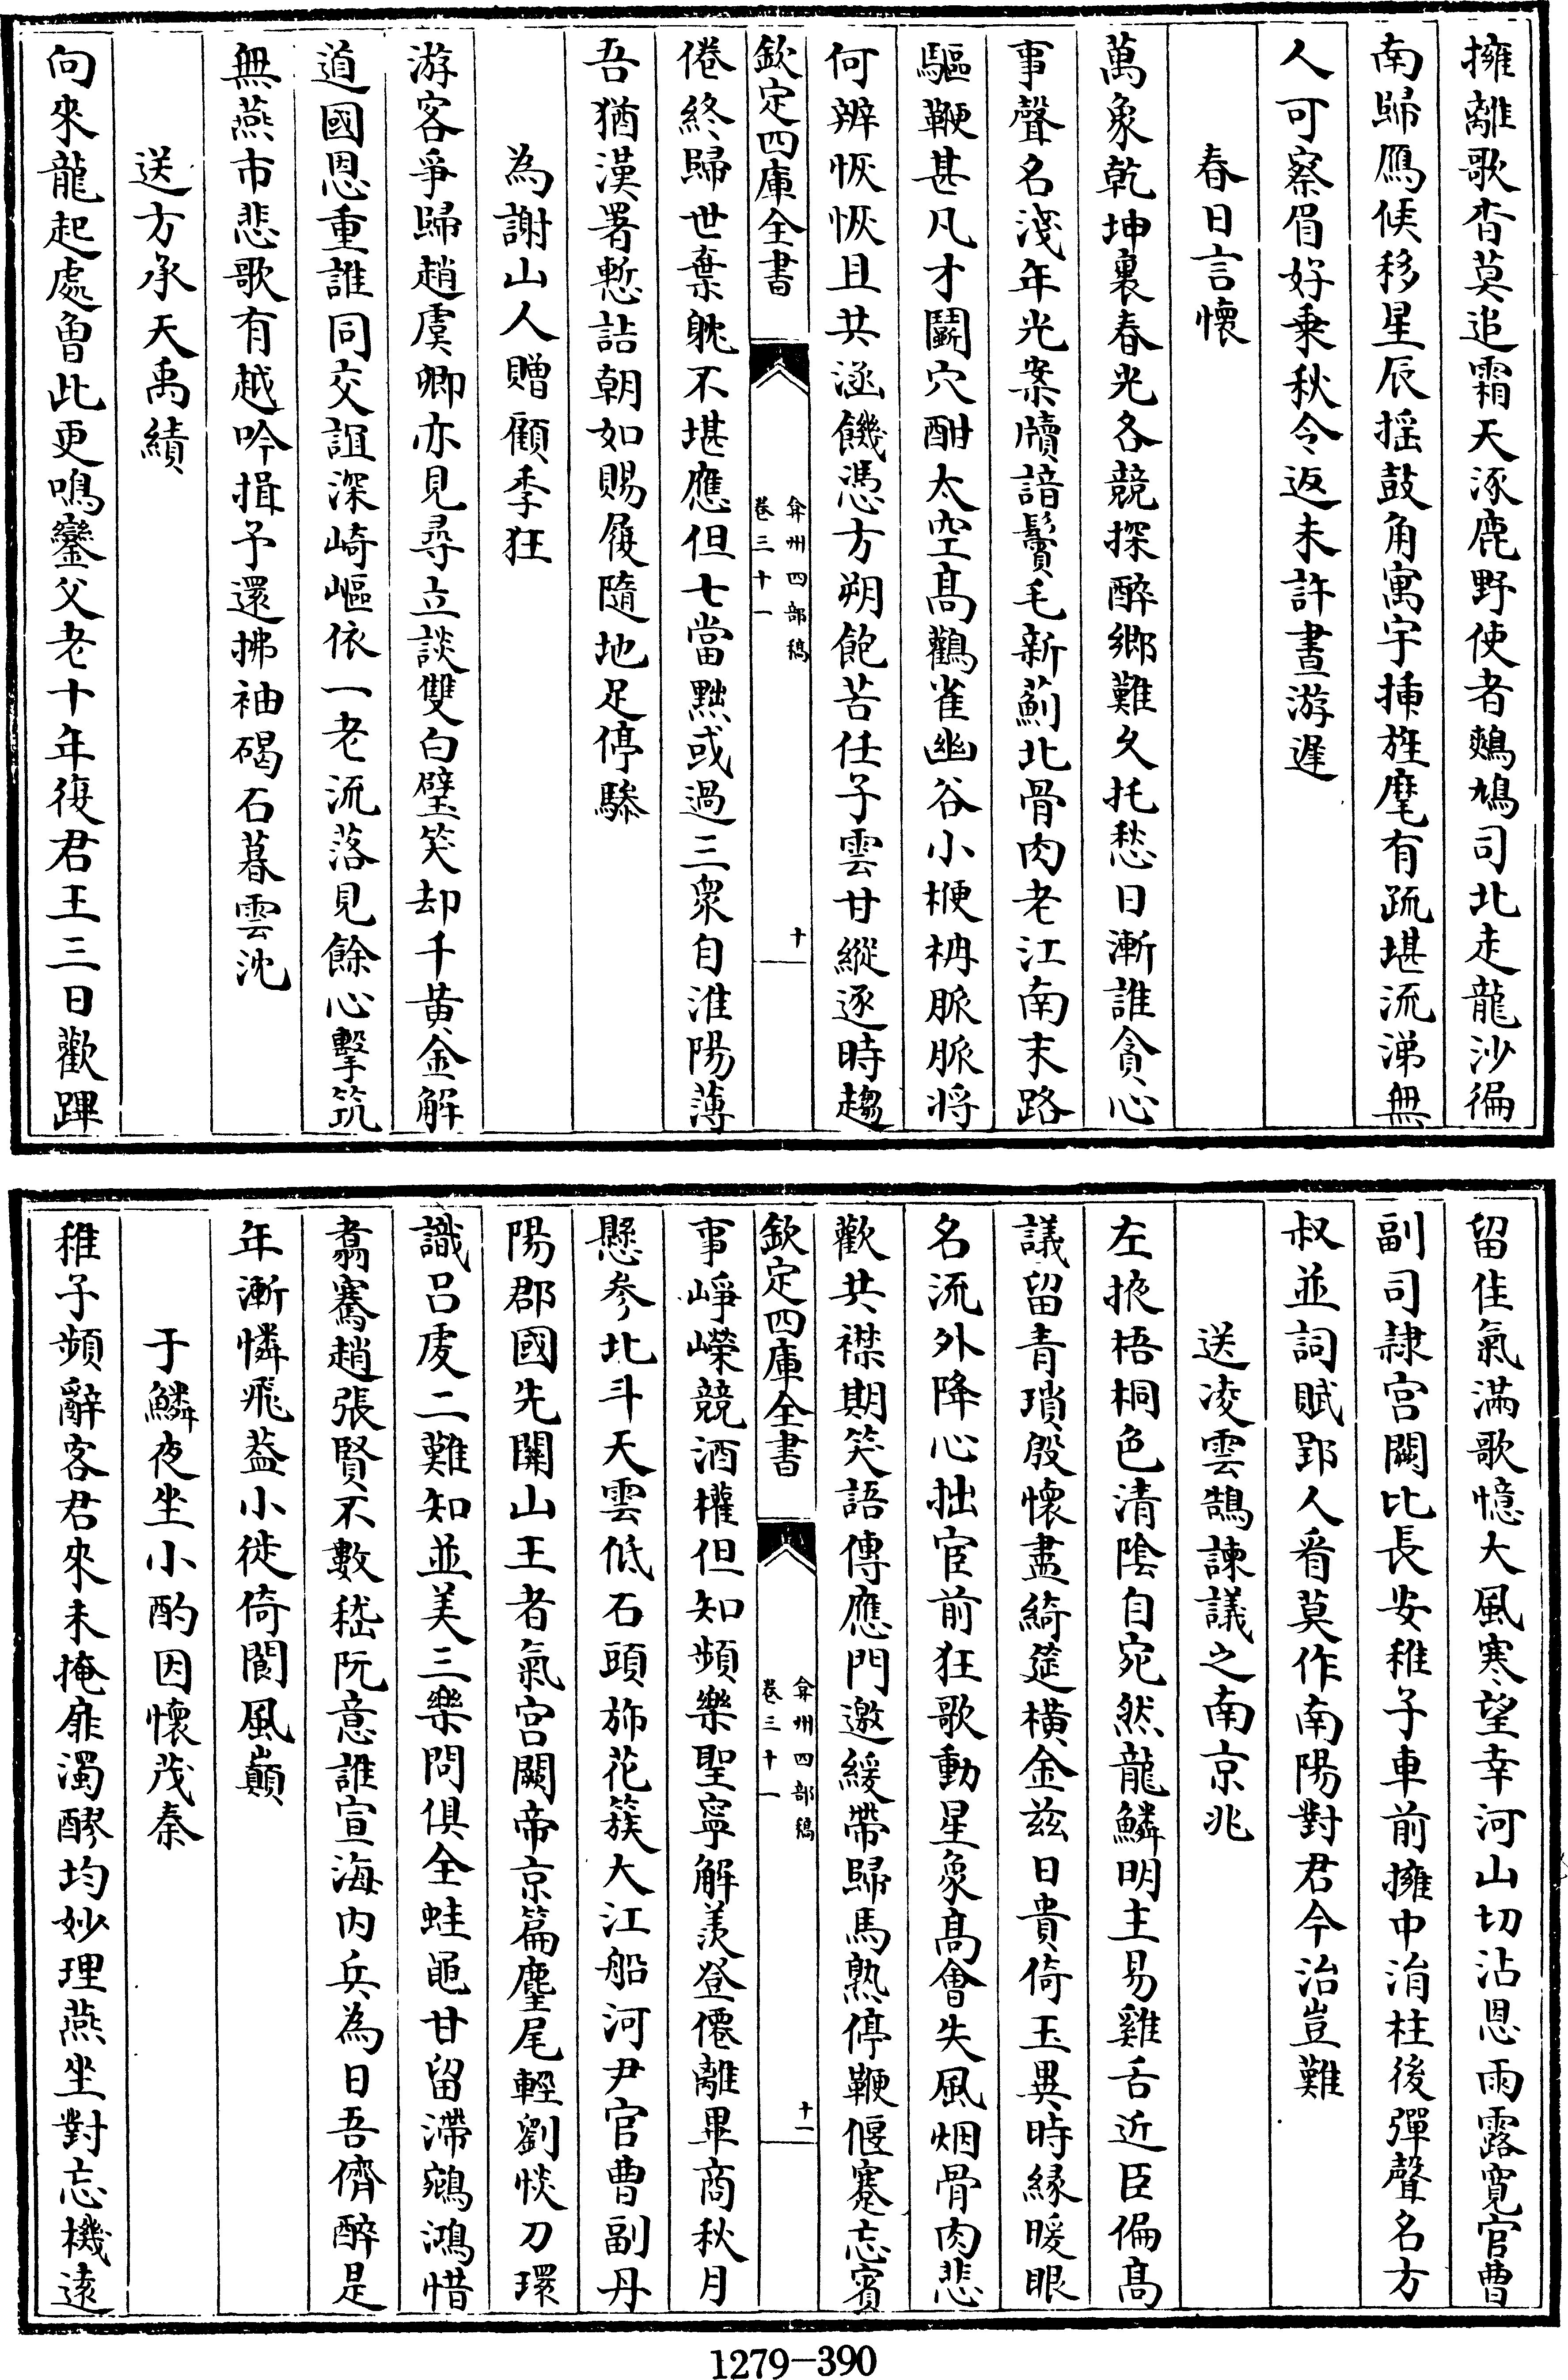 擁離歌杳莫追霜天涿鹿野使者鷞鳩司北走龍沙徧
南歸鴈候移星辰揺鼓角寓宇揷旌麾有疏堪流涕無
人可察眉好乗秋令返未許晝游遲
春日言懷
萬象乾坤裏春光各競探醉鄉難久托愁日漸誰貪心
事聲名淺年光案牘諳鬢毛新薊北骨肉老江南末路
驅鞭甚凡才鬭穴酣太空髙鸛雀幽谷小楩柟脈脈將
何辨恢恢且共涵饑憑方朔飽苦任子雲甘縱逐時趨
欽定四庫全書
弇州四部稿
卷三十一
十
倦終歸世棄躭不堪應但七當黜或過三衆自淮陽薄
吾猶漢署慙詰朝如賜履隨地足停驂
為謝山人贈顧季狂
游客爭歸趙虞卿亦見尋立談雙白璧笑却千黄金解
道國恩重誰同交誼深崎嶇依一老流落見餘心擊筑
無燕市悲歌有越吟揖予還拂袖碣石暮雲沈
送方承天禹績
向來龍起處曽此更鳴鑾父老十年復君王三日歡蹕
留佳氣滿歌憶大風寒望幸河山切沾恩雨露寛官曹
副司隷宫闕比長安稚子車前擁中涓柱後彈聲名方
叔並詞賦郢人㸔莫作南陽對君今治豈難
送凌雲鵠諫議之南京兆
左掖梧桐色清隂自宛然龍鱗明主易雞舌近臣偏髙
議留青瑣殷懷盡綺筵橫金茲日貴倚玉異時縁暖眼
名流外降心拙宦前狂歌動星象髙會失風烟骨肉悲
歡共襟期笑語傳應門邀緩帶歸馬熟停鞭偃蹇忘賓
欽定四庫全書
弇州四部稿
卷三十一
十一
事崢嶸競酒權但知頻樂聖寧解羨登僊離畢商秋月
懸參北斗天雲低石頭斾花簇大江船河尹官曹副丹
陽郡國先關山王者氣宫闕帝京篇麈尾輕劉惔刀環
識吕虔二難知並美三樂問俱全蛙黽甘留滯鵷鴻惜
翥騫趙張賢不數嵇阮意誰宣海内兵為日吾儕醉是
年漸憐飛葢小徙倚閬風巔
于鱗夜坐小酌因懷茂秦
稚子頻辭客君來未掩扉濁醪均妙理燕坐對忘機遠
1279-390